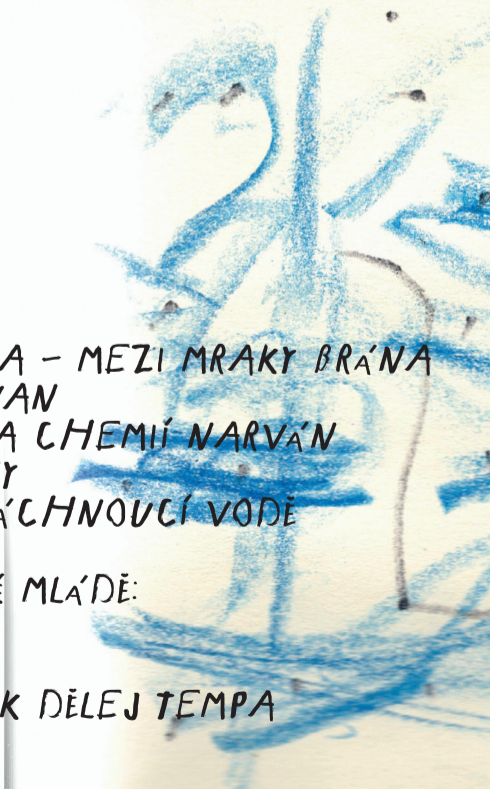 A – MEZI MRAKY BRÁNA
VAN
A CHEMIÍ NARVÁN
Y
ÁCHNOUCÍ VODĚ
É MLÁDĚ:
K DĚLEJ TEMPA